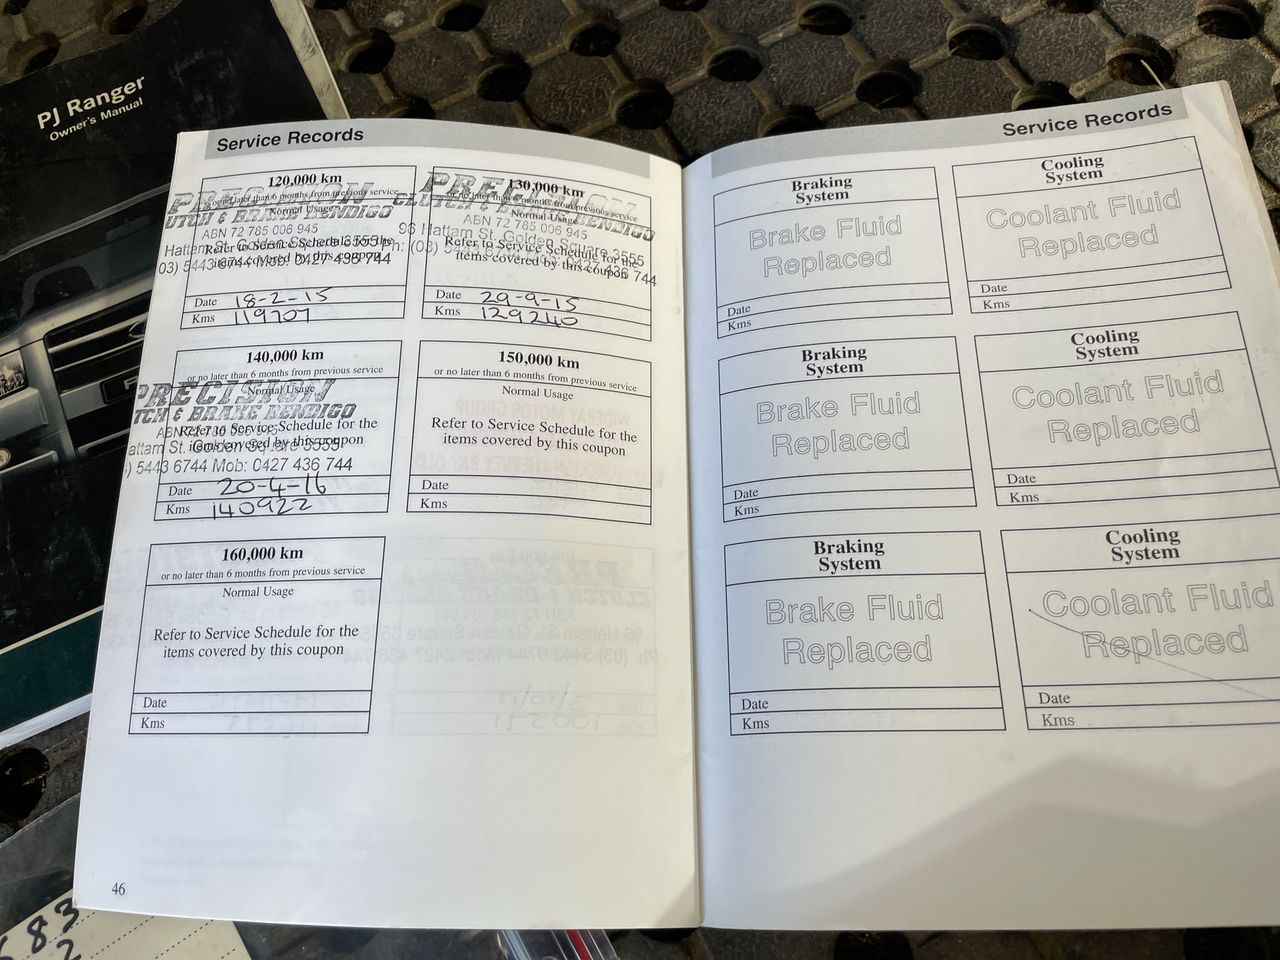 PJ Ranger
Owner's Manual
Service Records
120,000 km
or no later than 6 months from previous service
Normal Usage
PRECISION
UTCH & BRAKE BENDIGO
ABN 72 785 006 945
Hattam St. Golden Square 3555
03) 5443 6744 Mob: 0427 436 744
Refer to Service Schedule for the
items covered by this coupon
Date 18-2-15
Kms 119707
130,000 km
or no later than 6 months from previous service
Normal Usage
PRECISION
CLUTCH & BRAKE BENDIGO
ABN 72 785 006 945
96 Hattam St. Golden Square 3555
Ph: (03) 5443 6744 Mob: 0427 436 744
Refer to Service Schedule for the
items covered by this coupon
Date 29-9-15
Kms 129240
140,000 km
or no later than 6 months from previous service
Normal Usage
PRECISION
TCH & BRAKE BENDIGO
ABN 72 785 006 945
attam St. Golden Square 3555
) 5443 6744 Mob: 0427 436 744
Refer to Service Schedule for the
items covered by this coupon
Date 20-4-16
Kms 140922
150,000 km
or no later than 6 months from previous service
Normal Usage
Refer to Service Schedule for the
items covered by this coupon
Date
Kms
160,000 km
or no later than 6 months from previous service
Normal Usage
Refer to Service Schedule for the
items covered by this coupon
Date
Kms
46
Service Records
Braking
System
Brake Fluid
Replaced
Date
Kms
Cooling
System
Coolant Fluid
Replaced
Date
Kms
Braking
System
Brake Fluid
Replaced
Date
Kms
Cooling
System
Coolant Fluid
Replaced
Date
Kms
Braking
System
Brake Fluid
Replaced
Date
Kms
Cooling
System
Coolant Fluid
Replaced
Date
Kms